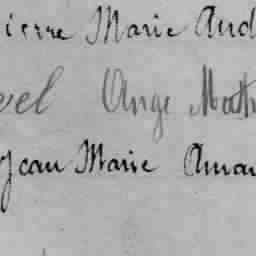 ierre Marie Aud
vel Ange Math
Jean Marie Amau